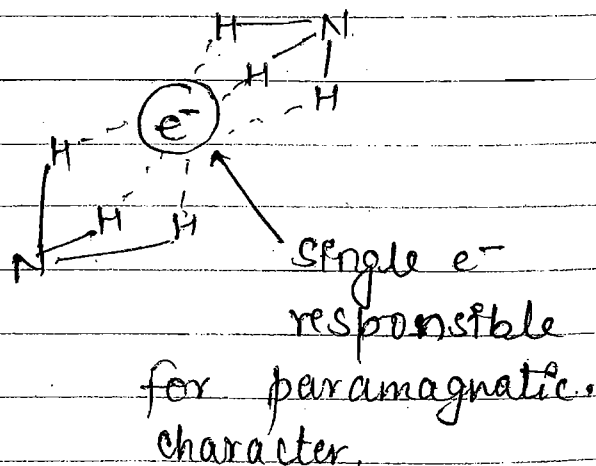 H N
H
H
e⁻
H
H H
N
Single e⁻
responsible
for paramagnatic.
character.